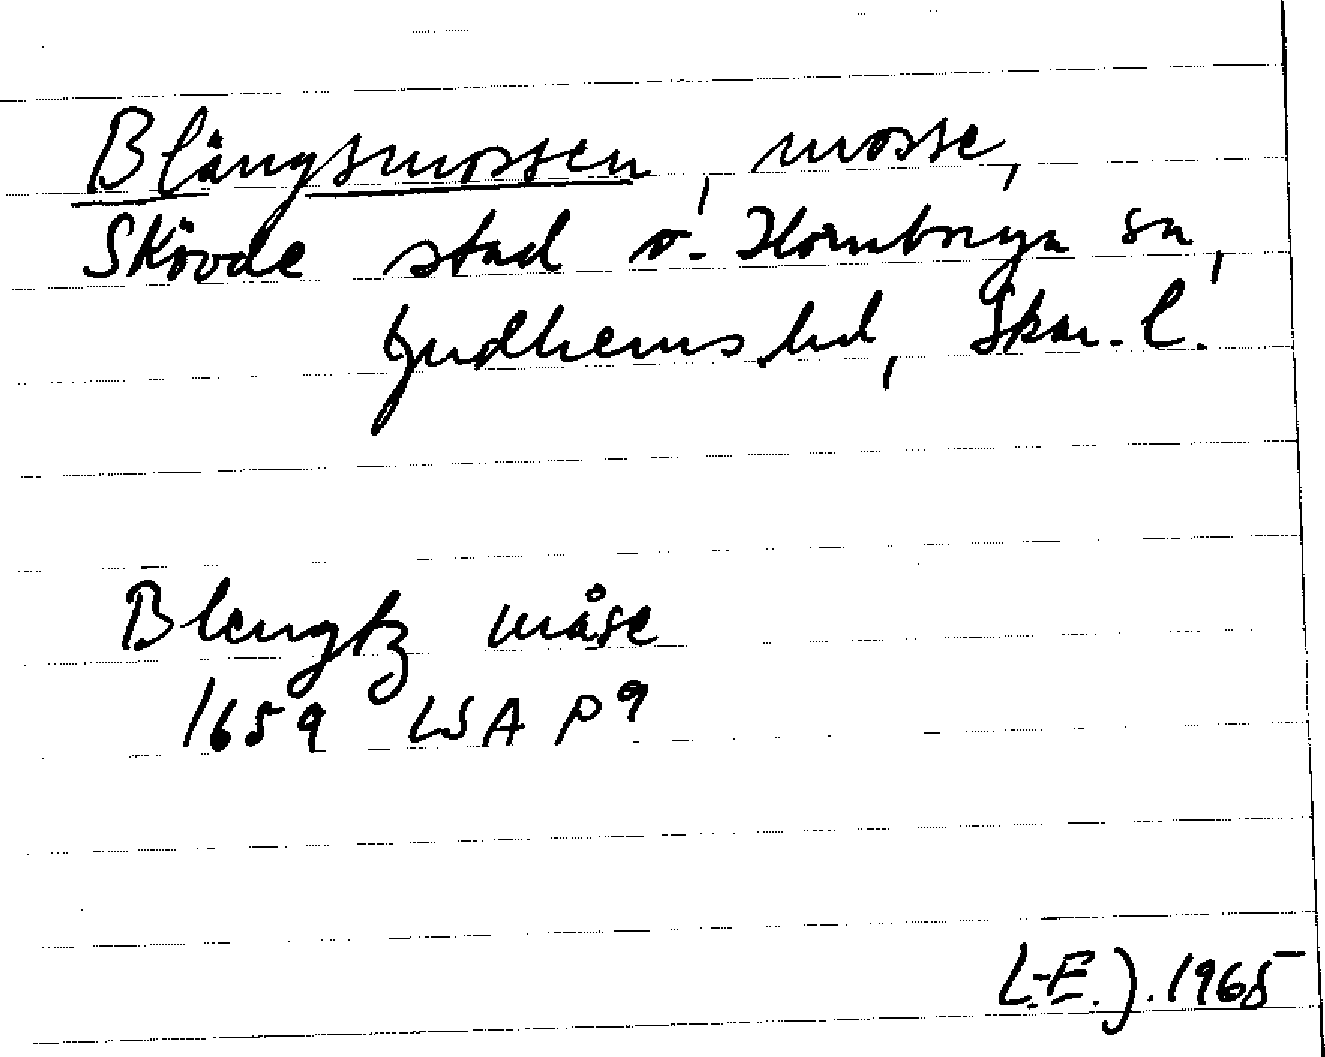 Blängsmossen, mosse,
Skövde stad o. Hornborga sn,
Gudhems hd, Skar. l.
Blengtz måse
1659 LSA P9
L-E. J. 1965